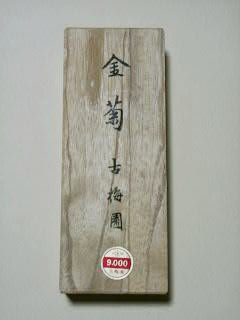 金菊
古梅園
9.000